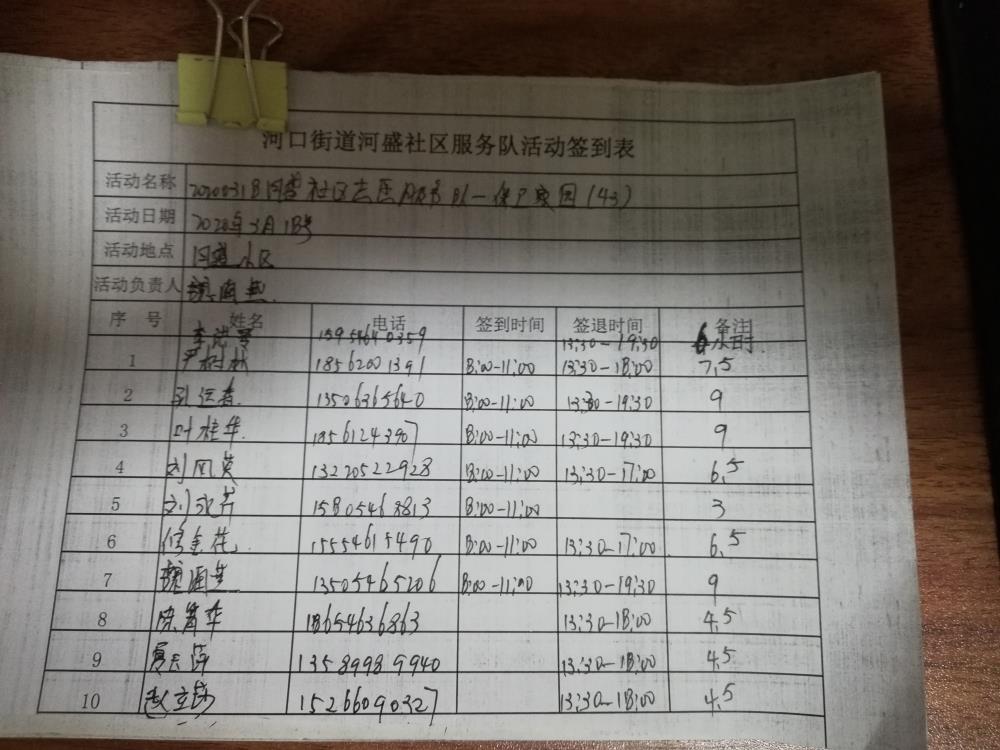 河口街道河盛社区服务队活动签到表
活动名称 20200318河盛社区志愿服务队—保护家园(43)
活动日期 2020年3月18号
活动地点 河盛小区
活动负责人
序 号 姓名 电话 签到时间 签退时间 备注
15954640359 13:30-19:30 6小时
1 严树林 18562001391 8:00-11:00 13:30-18:00 7.5
2 13506365640 8:00-11:00 13:30-19:30 9
3 叶桂华 18561243907 8:00-11:00 13:30-19:30 9
4 刘凤英 13220522928 8:00-11:00 13:30-17:00 6.5
5 刘永芳 15805463813 8:00-11:00 3
6 15554615490 8:00-11:00 13:30-17:00 6.5
7 13505465206 8:00-11:00 13:30-19:30 9
8 18654636863 13:30-18:00 4.5
9 13589989940 13:30-18:00 4.5
10 赵立莎 15266090327 13:30-18:00 4.5